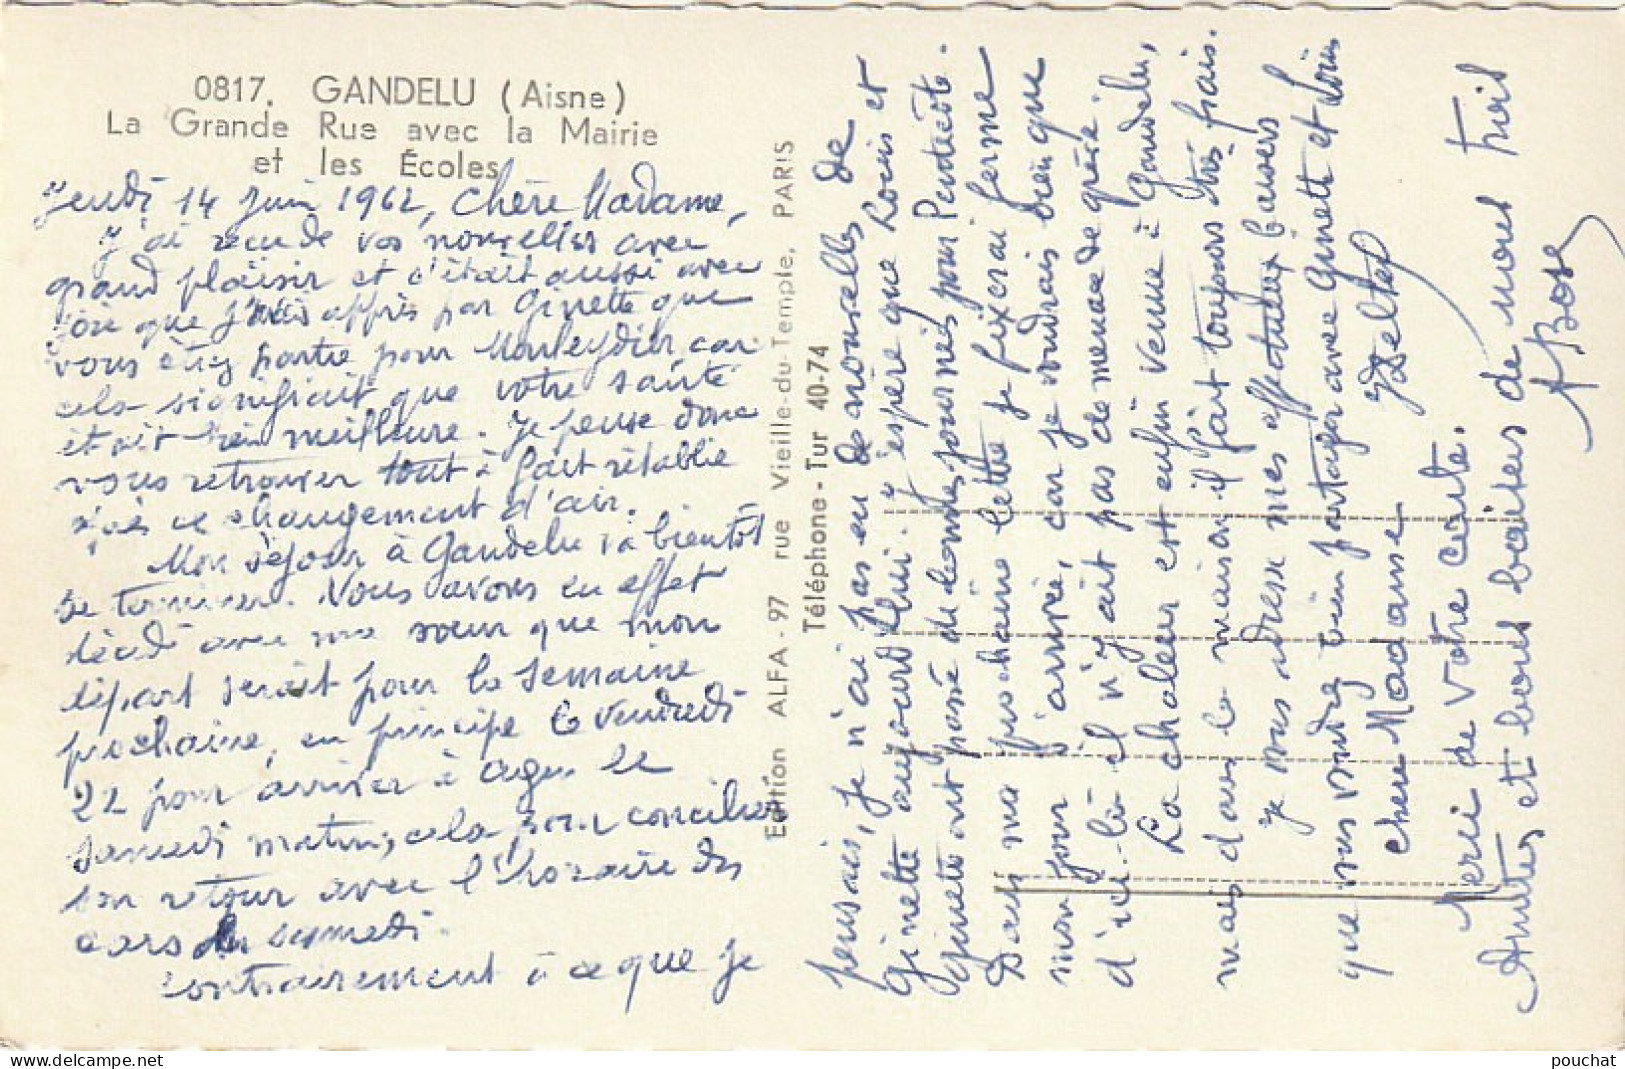 0817. GANDELU (Aisne)
La Grande Rue avec la Mairie
et les Écoles
Jeudi 14 Juin 1962, Chère Madame,
J'ai reçu de vos nouvelles avec
grand plaisir et c'était aussi avec
joie que j'avais appris par Ginette que
vous étiez partie pour Mouleydier car
cela signifiait que votre santé
était bien meilleure. Je pense donc
vous retrouver tout à fait rétablie
après ce changement d'air.
Mon séjour à Gandelu va bientôt
se terminer. Nous avons en effet
décidé avec ma sœur que mon
départ serait pour la semaine
prochaine, en principe le Vendredi
22 pour arriver à Agen le
samedi matin, cela pour concilier
son retour avec l'horaire des
cars du samedi.
contrairement à ce que je
Edition ALFA - 97 rue Vieille-du-Temple, PARIS
Téléphone - Tur 40-74
pensais, je n'ai pas eu de nouvelles de
Ginette aujourd'hui. J'espère que Louis et
Ginette ont passé de bonnes journées pour Pentecôte.
Dans ma prochaine lettre je fixerai ferme
mon jour d'arrivée, car je voudrais bien que
d'ici là il n'y ait pas de menace de grève.
La chaleur est enfin venue à Gandelu,
mais dans la maison il fait toujours très frais.
Je vous adresse mes affectueux baisers
que vous voudrez bien partager avec Ginette et Louis
chère Madame
YDeltel
Merci de votre carte.
Amitiés et bons baisers de nous trois
ABose
pouchat